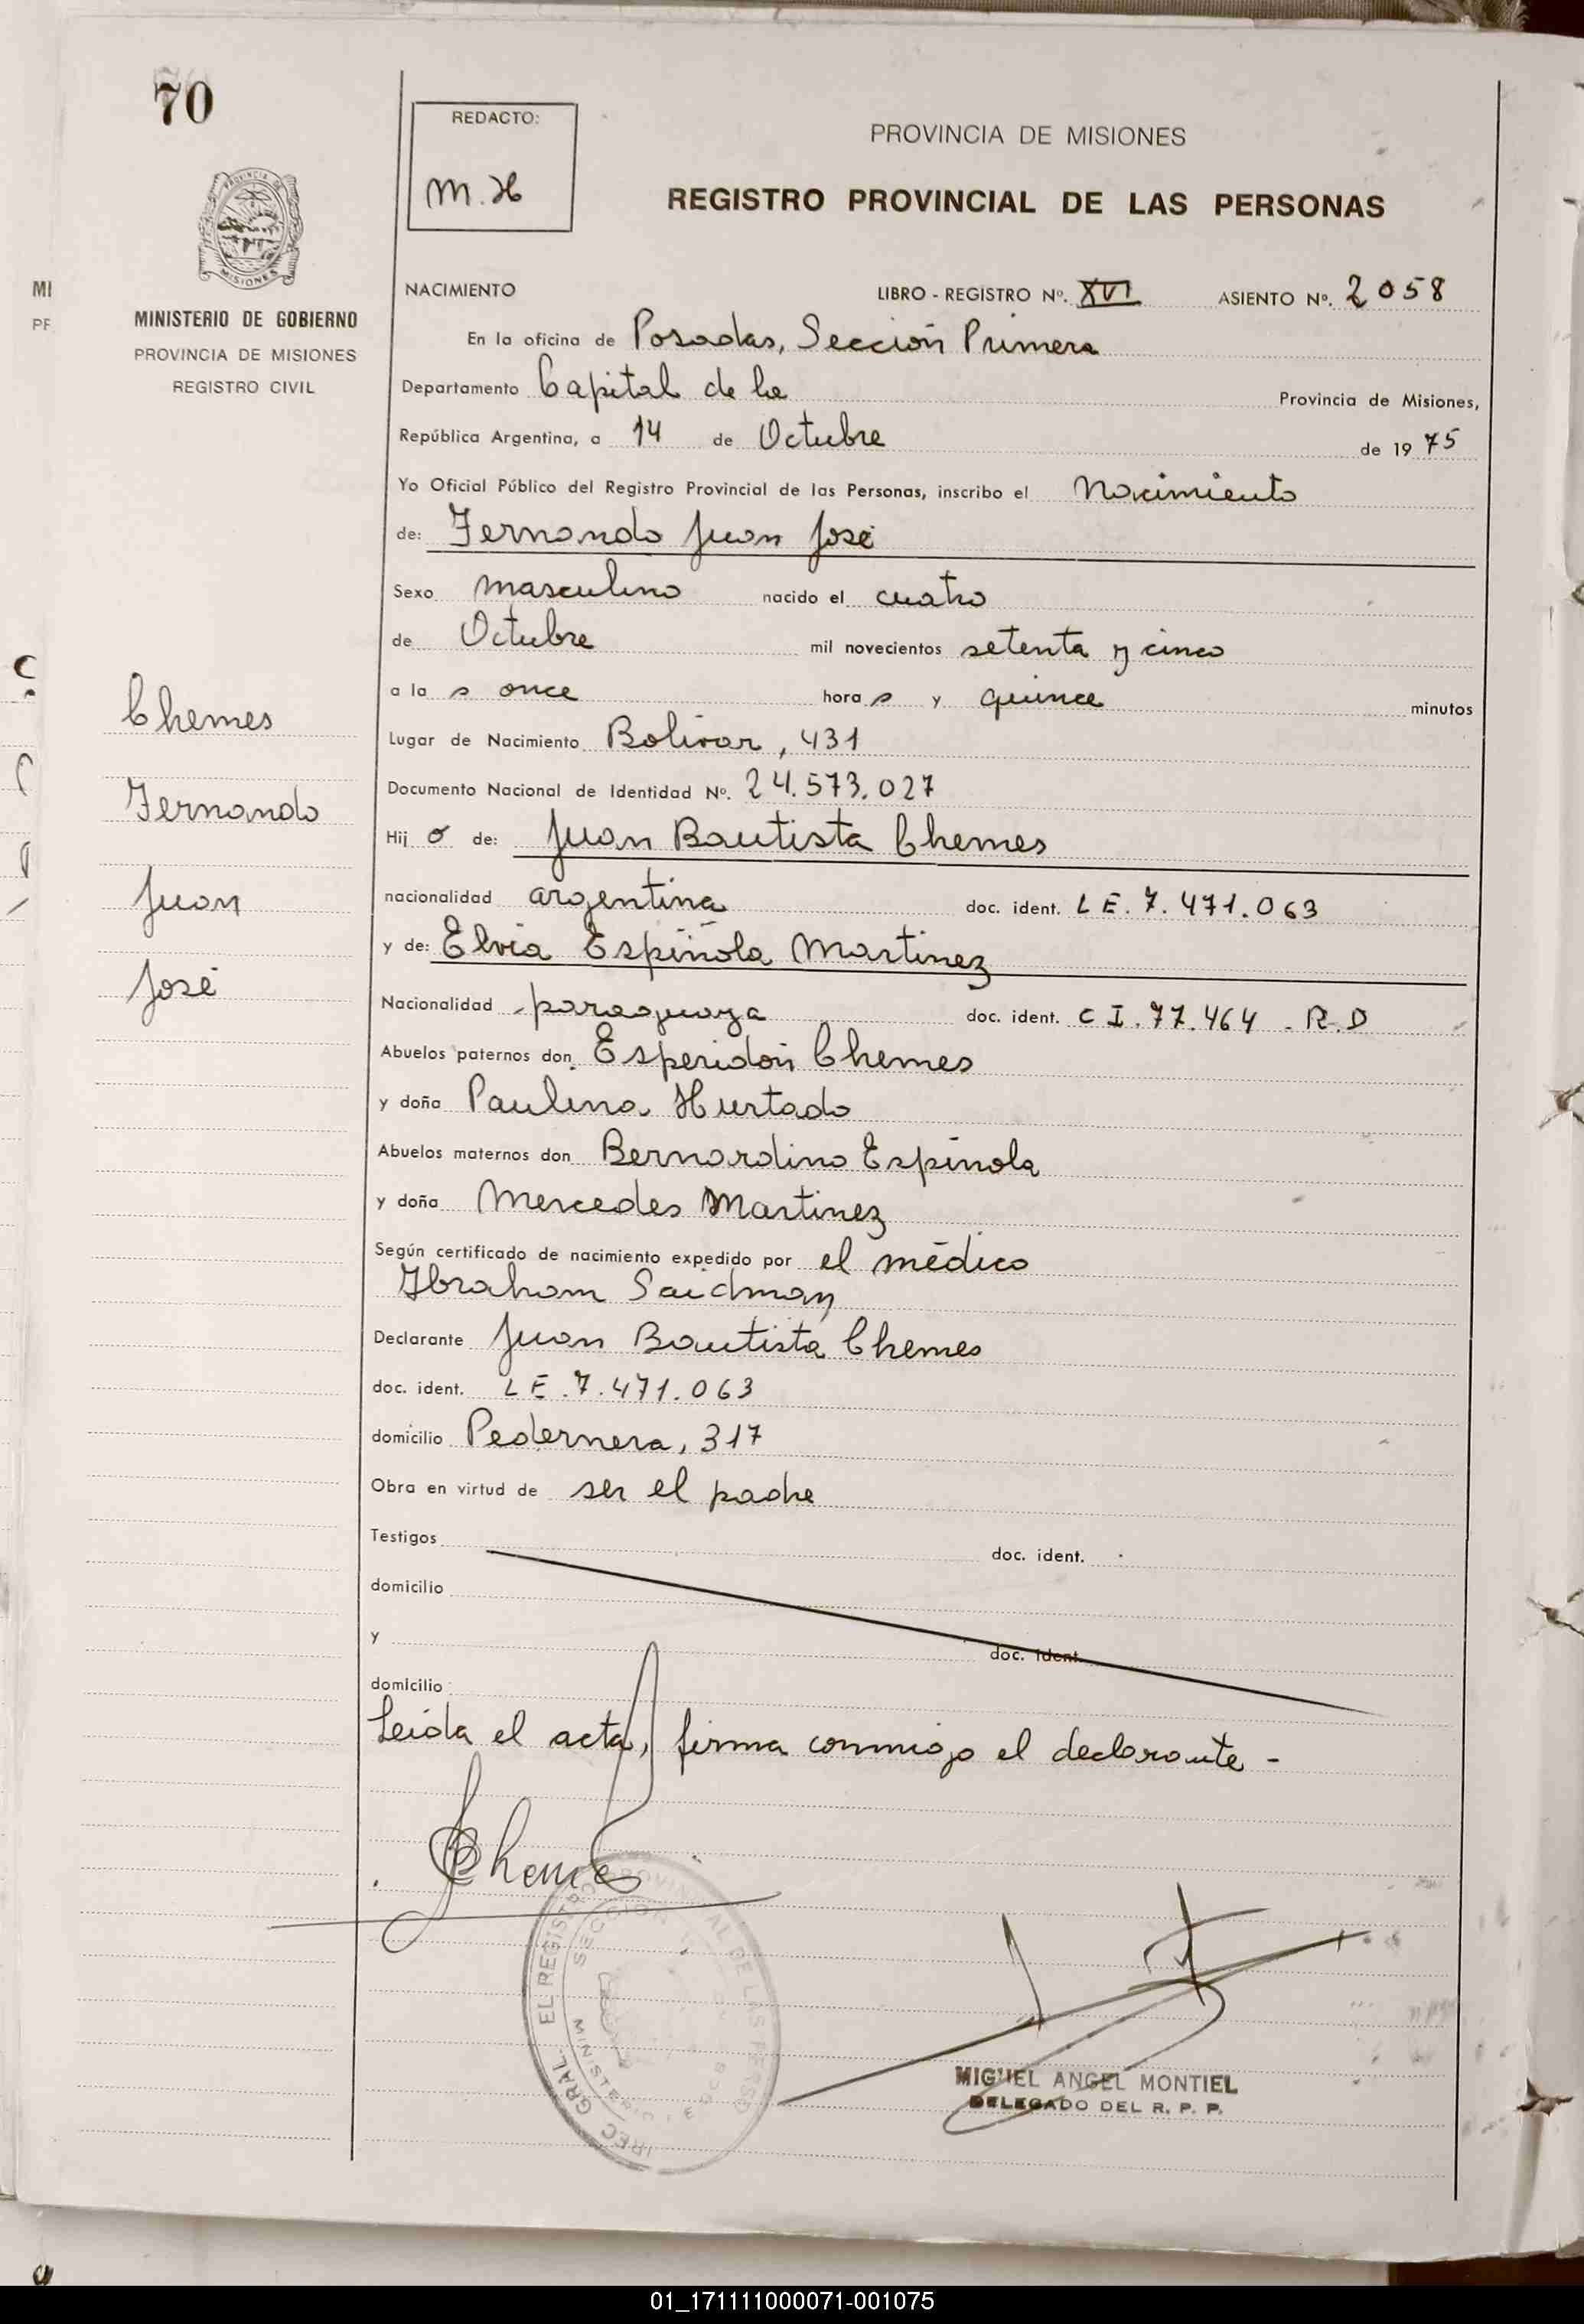 70
REDACTO:
M.H
PROVINCIA DE MISIONES
REGISTRO PROVINCIAL DE LAS PERSONAS
MINISTERIO DE GOBIERNO
PROVINCIA DE MISIONES
REGISTRO CIVIL
MI
PF
NACIMIENTO LIBRO - REGISTRO Nº. XVI ASIENTO Nº. 2058
En la oficina de Posadas, Sección Primera
Departamento Capital de la Provincia de Misiones,
República Argentina, a 14 de Octubre de 1975
Yo Oficial Público del Registro Provincial de las Personas, inscribo el Nacimiento
de: Fernando Juan José
Sexo masculino nacido el cuatro
de Octubre mil novecientos setenta y cinco
a la s once hora s y quince minutos
Lugar de Nacimiento Bolivar, 431
Documento Nacional de Identidad Nº. 24.573.027
Hij o de: Juan Bautista Chemes
nacionalidad argentina doc. ident. LE. 7.471.063
y de: Elvia Espínola Martinez
Nacionalidad paraguaya doc. ident. CI. 77.464 - R.D
Abuelos paternos don Esperidón Chemes
y doña Paulina Hurtado
Abuelos maternos don Bernardino Espínola
y doña Mercedes Martinez
Según certificado de nacimiento expedido por el médico
Ibraham Saidman
Declarante Juan Bautista Chemes
doc. ident. LE. 7.471.063
domicilio Pedernera, 317
Obra en virtud de ser el padre
Testigos doc. ident.
domicilio
y doc. ident.
domicilio
Leída el acta, firma conmigo el declarante -
Chemes
Chemes
Fernando
Juan
José
MIGUEL ANGEL MONTIEL
DELEGADO DEL R. P. P.
01_171111000071-001075